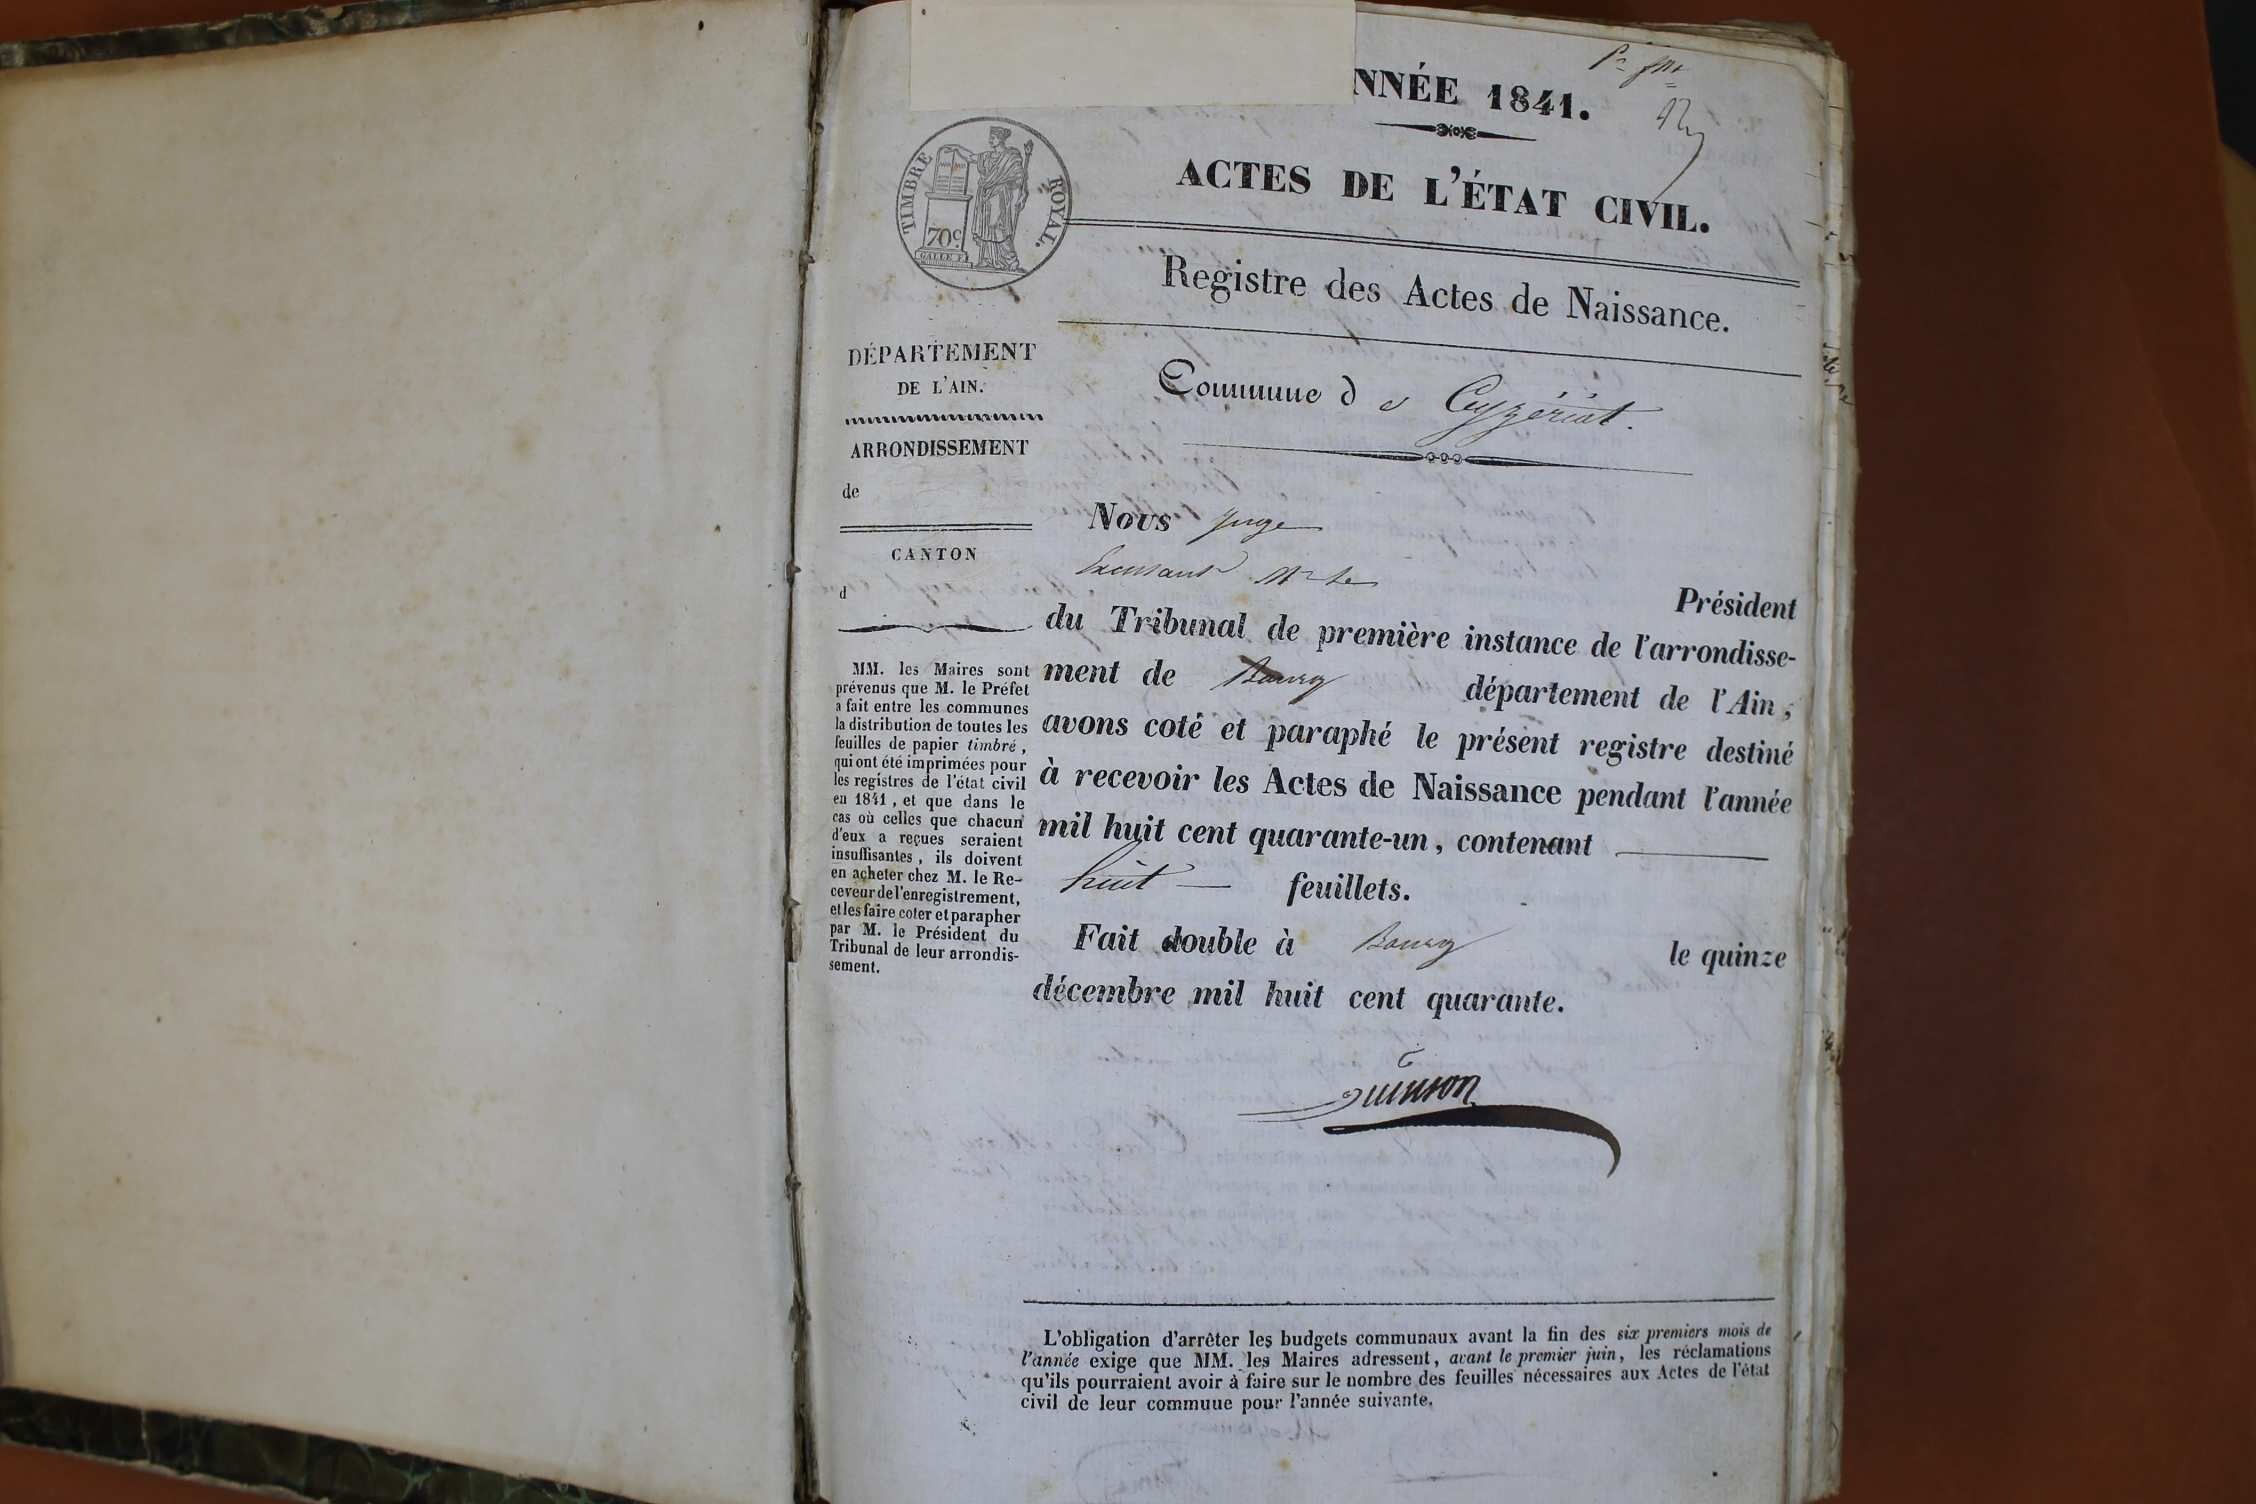 NNÉE 1841.
ACTES DE L'ÉTAT CIVIL.
TIMBRE ROYAL.
70c.
GALLE F.
Registre des Actes de Naissance.
DÉPARTEMENT
DE L'AIN.
Commune d e Ceyzériat.
ARRONDISSEMENT
de
CANTON
d
MM. les Maires sont
prévenus que M. le Préfet
a fait entre les communes
la distribution de toutes les
feuilles de papier timbré,
qui ont été imprimées pour
les registres de l'état civil
en 1841, et que dans le
cas où celles que chacun
d'eux a reçues seraient
insuffisantes, ils doivent
en acheter chez M. le Re-
ceveur de l'enregistrement,
et les faire coter et parapher
par M. le Président du
Tribunal de leur arrondis-
sement.
Nous Juge
Mr le
Président
du Tribunal de première instance de l'arrondisse-
ment de Bourg département de l'Ain,
avons coté et paraphé le présent registre destiné
à recevoir les Actes de Naissance pendant l'année
mil huit cent quarante-un, contenant
huit feuillets.
Fait double à Bourg le quinze
décembre mil huit cent quarante.
L'obligation d'arrêter les budgets communaux avant la fin des six premiers mois de
l'année exige que MM. les Maires adressent, avant le premier juin, les réclamations
qu'ils pourraient avoir à faire sur le nombre des feuilles nécessaires aux Actes de l'état
civil de leur commune pour l'année suivante.